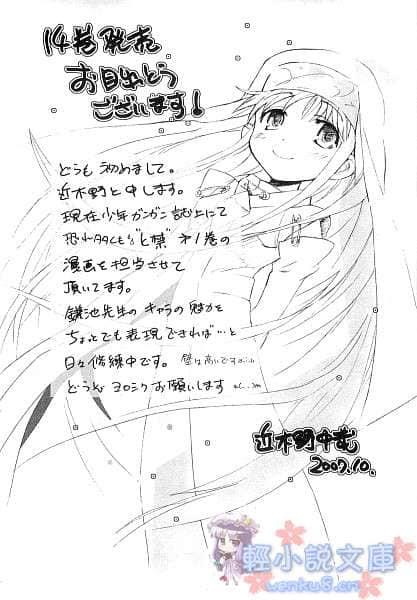 14巻発売
お目れとう
ございます！
どうも 初めまして。
近木野と申します。
現在少年ガンガン誌上にて
恐れ多くも"と禁"第1巻の
漫画を担当させて
頂いてます。
鎌池先生のキャラの魅力を
ちょっとでも表現できれば…と
日々修練中です。壁は高いですが
どうぞ ヨロシクお願いします
近木野中哉
2007.10.
輕小說文庫
wenku8.cn